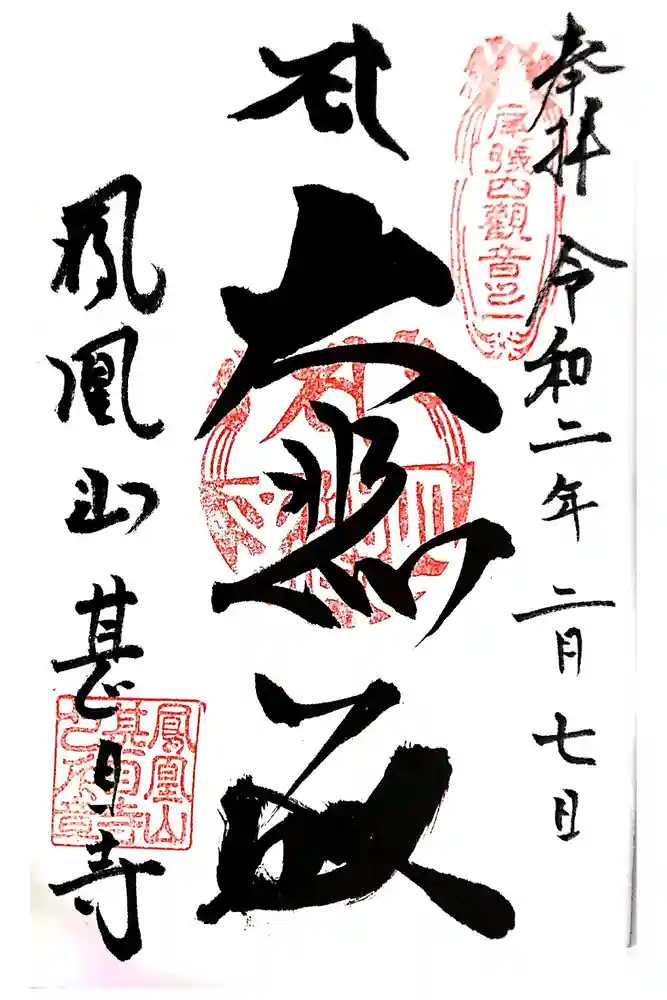 奉拝 令和二年 二月七日
尾張四觀音之一
大悲殿
鳳凰山 甚目寺
鳳凰山
甚目寺